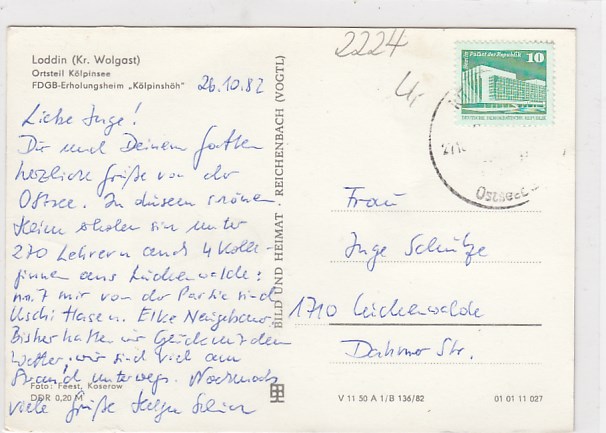 Loddin (Kr. Wolgast)
Ortsteil Kölpinsee
FDGB-Erholungsheim „Kölpinshöh"
26.10.82
Liebe Inge!
Dir und Deinem Gatten
herzliche Grüße von der
Ostsee. In diesem schönen
Heim erholen sich unter
270 Lehrern auch 4 Kolle-
ginnen aus Luckenwalde:
mit mir von der Partie sind
Uschi Hase u. Elke
Bisher hatten wir Glück mit dem
Wetter, wir sind viel am
Strand unterwegs. Nochmals
viele Grüße Helga
Foto: Feest, Koserow
DDR 0,20 M
BILD UND HEIMAT REICHENBACH (VOGTL)
2224
Palast der Republik
10
DEUTSCHE DEMOKRATISCHE REPUBLIK
Ostseeb
Frau
Inge Schütze
1710 Luckenwalde
Dahmer Str.
V 11 50 A 1/B 136/82
01 01 11 027